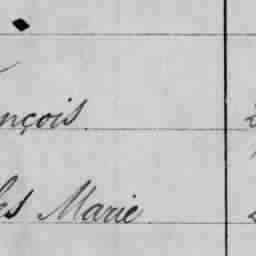 nçois
les Marie